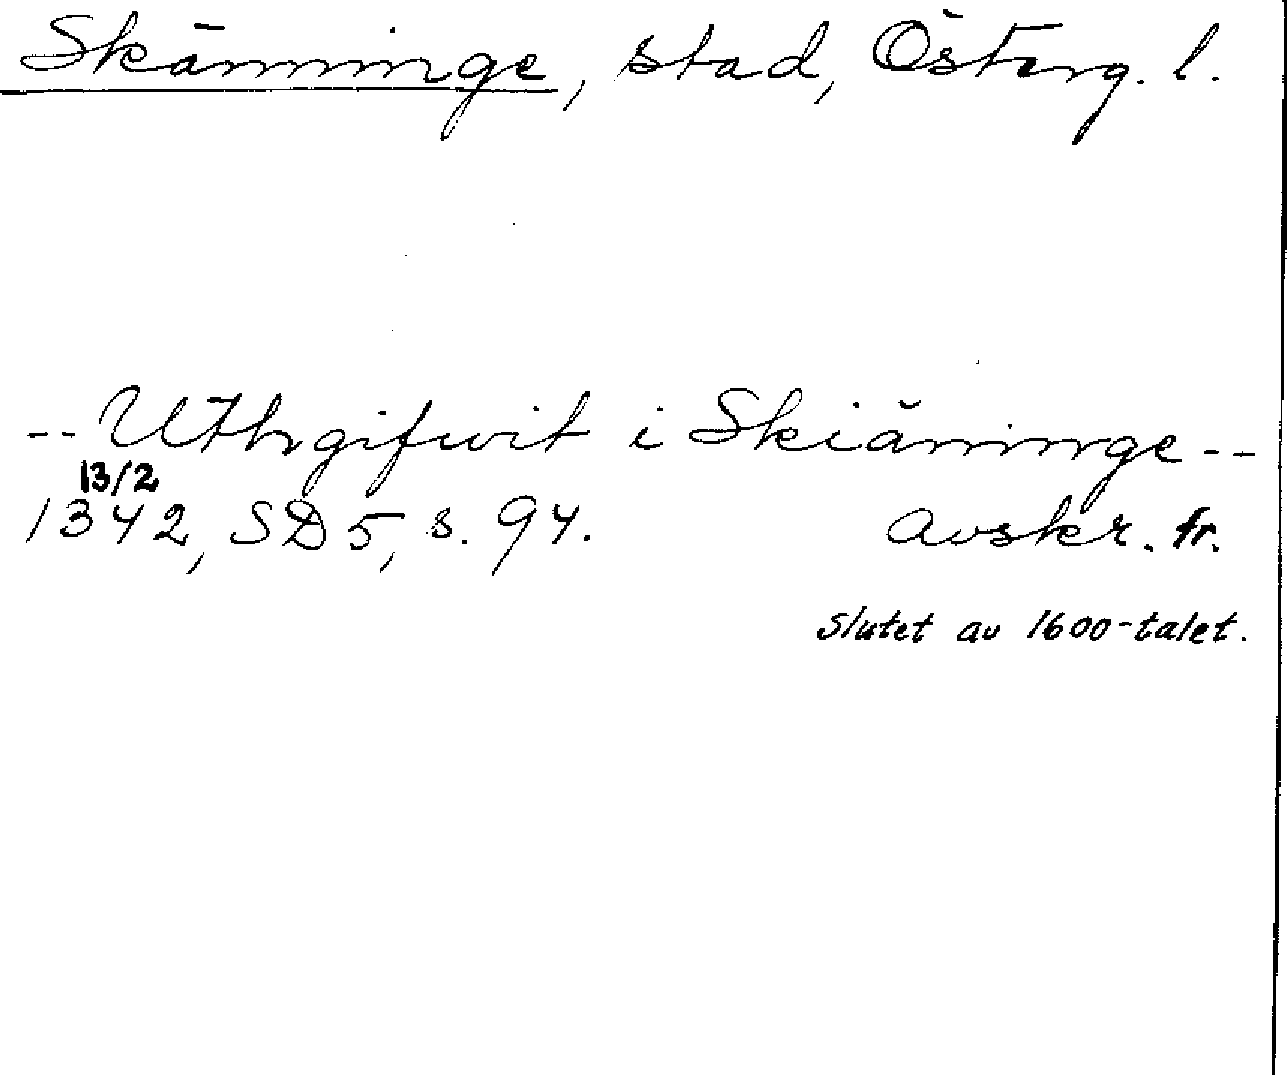 Skänninge, stad, Österg. l.
-- Uthgifwit i Skiäninge --
13/2
1342, SD 5, s. 94. Avskr. fr.
slutet av 1600-talet.